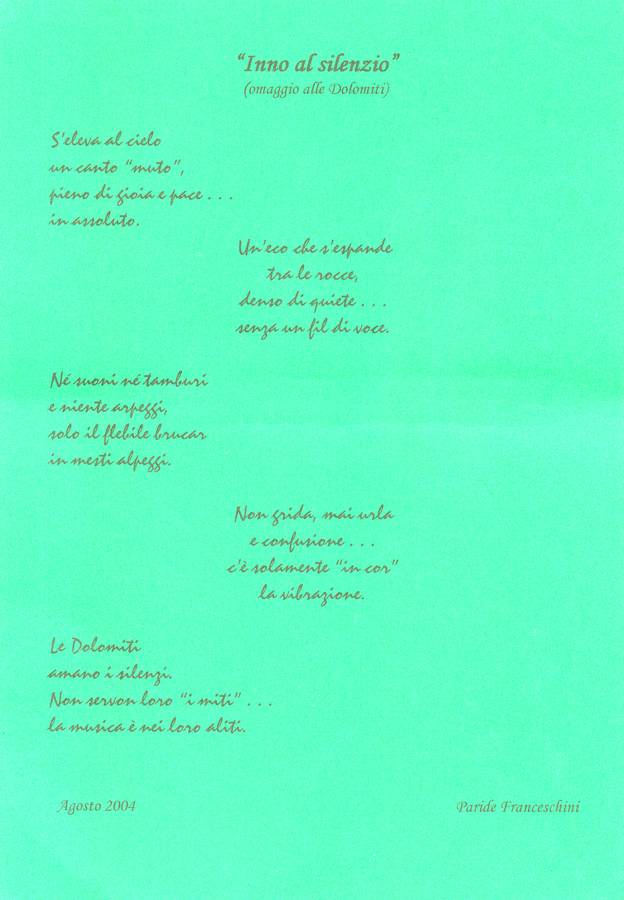 “Inno al silenzio”
(omaggio alle Dolomiti)
S'eleva al cielo
un canto “muto”,
pieno di gioia e pace . . .
in assoluto.
Un'eco che s'espande
tra le rocce,
denso di quiete . . .
senza un fil di voce.
Né suoni né tamburi
e niente arpeggi,
solo il flebile brucar
in mesti alpeggi.
Non grida, mai urla
e confusione . . .
c'è solamente “in cor”
la vibrazione.
Le Dolomiti
amano i silenzi.
Non servon loro “i miti” . . .
la musica è nei loro aliti.
Agosto 2004
Paride Franceschini